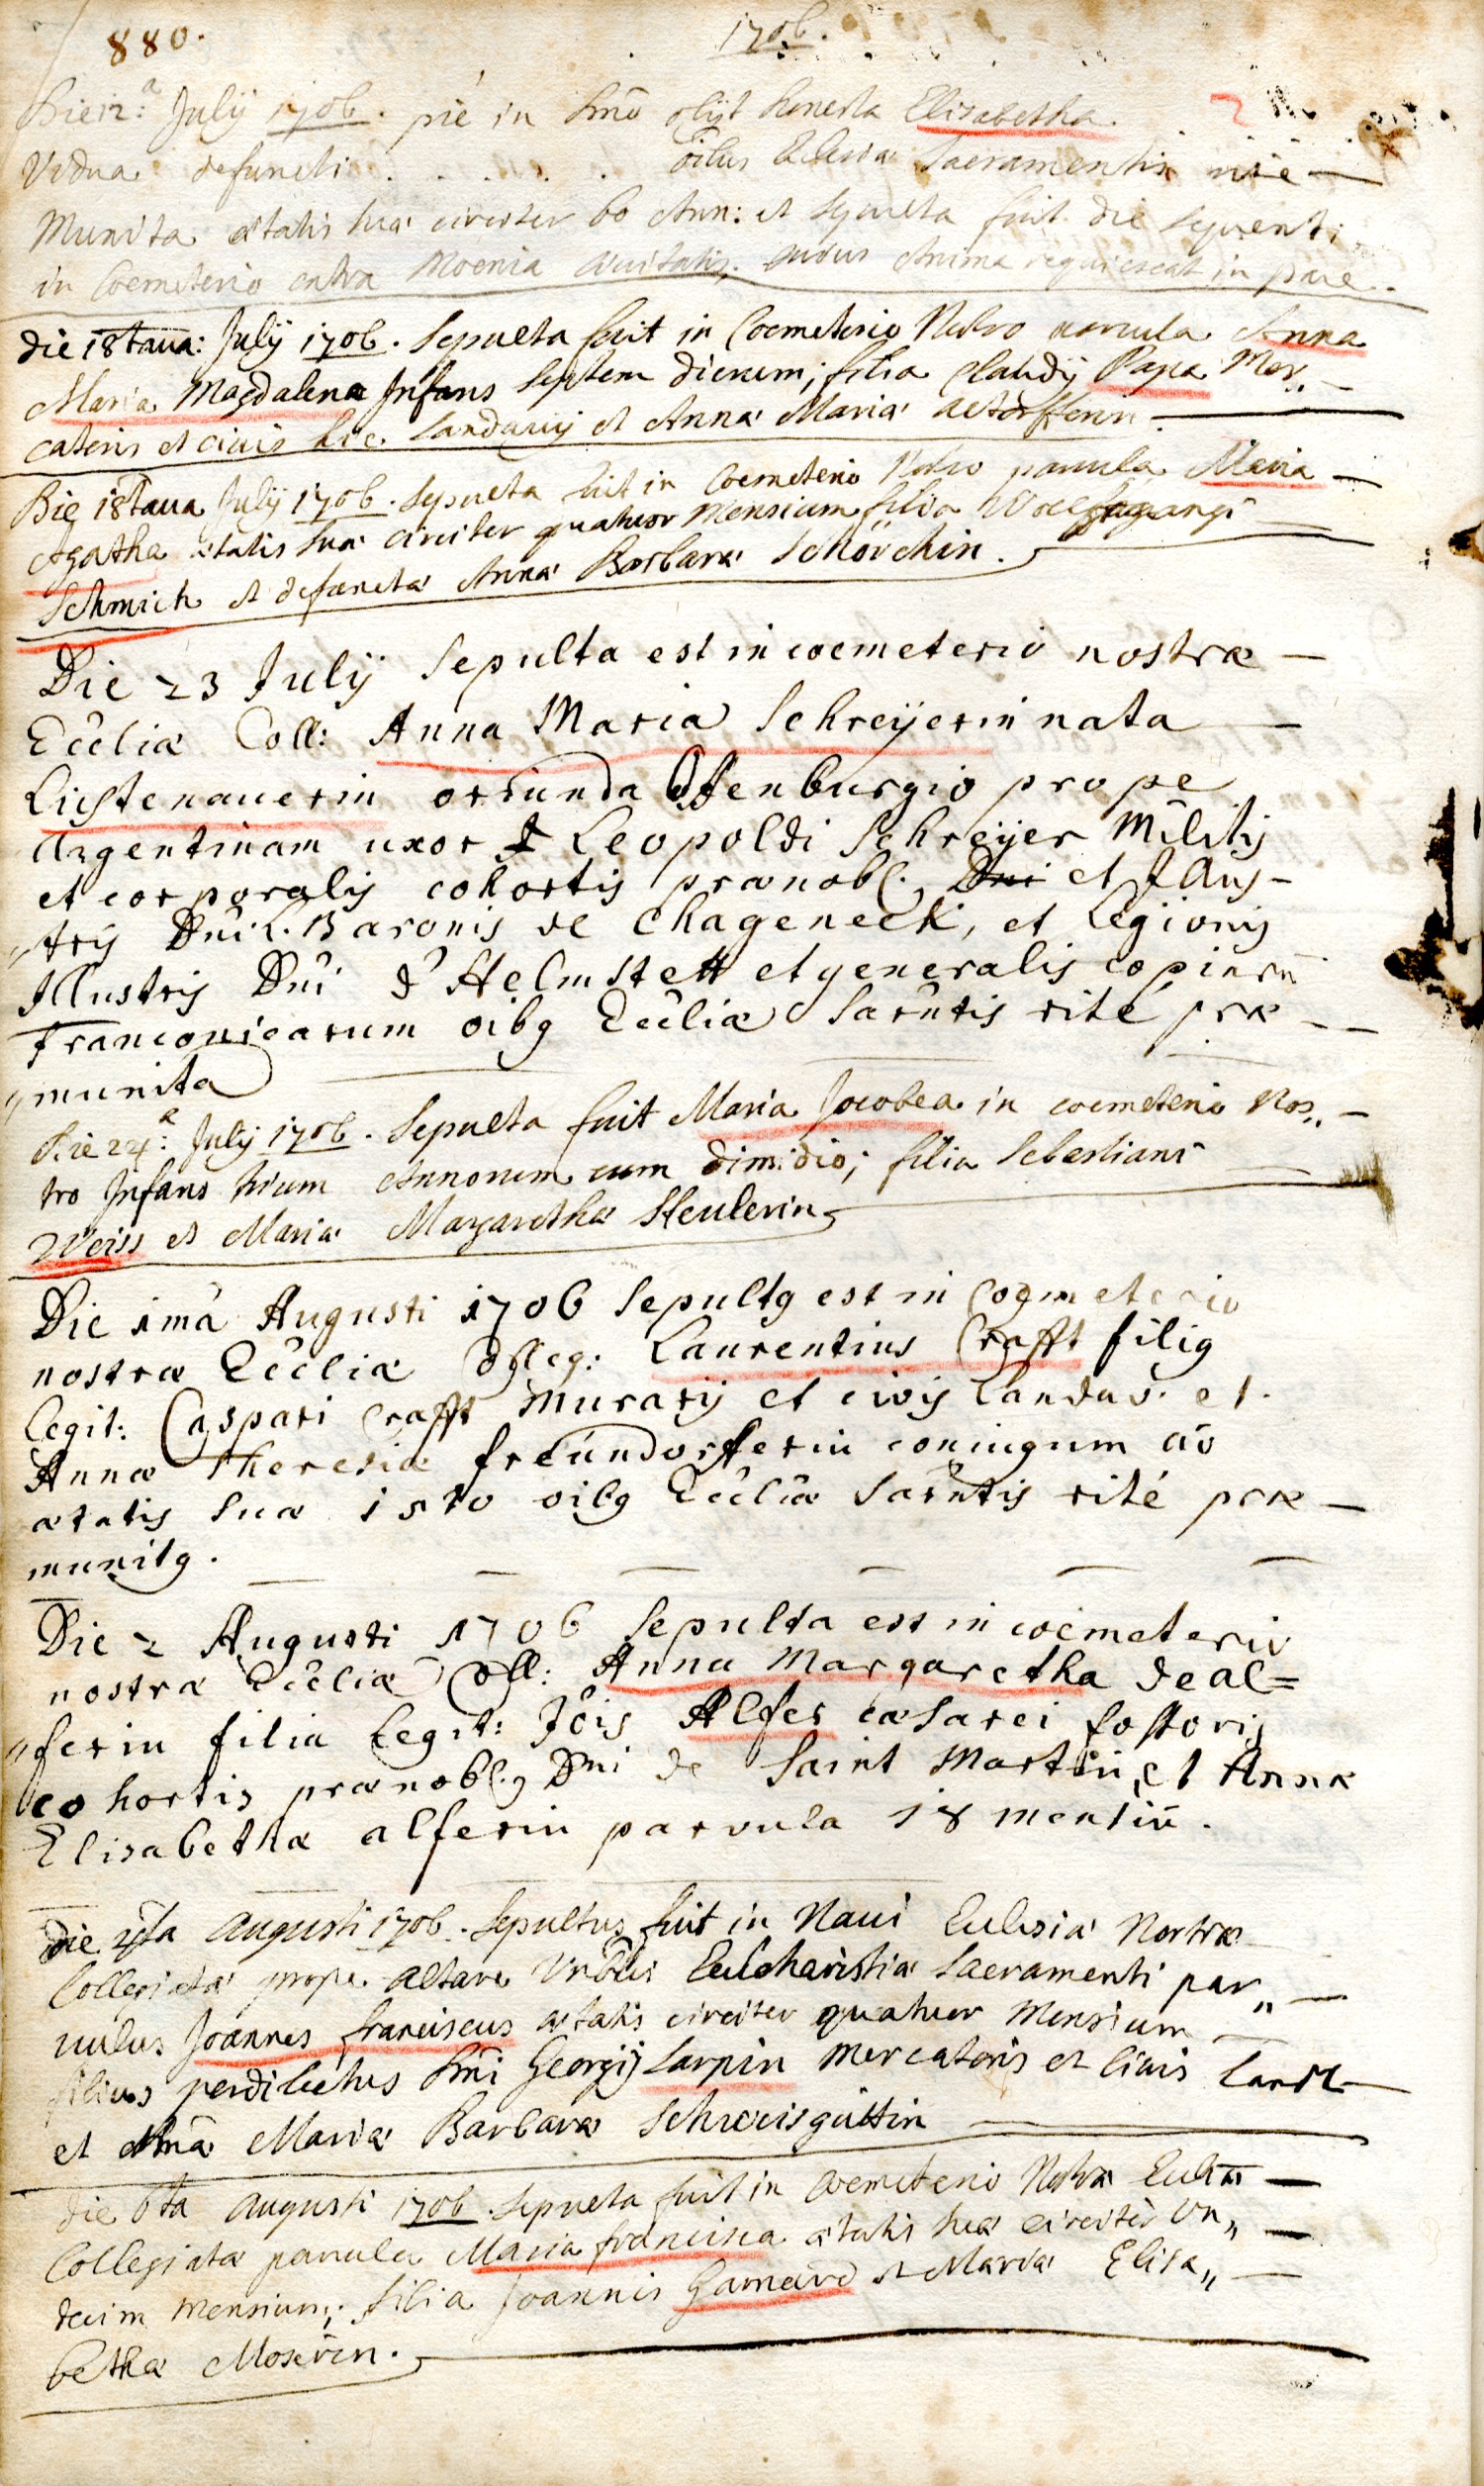 880.
1706.
Die 12.a July 1706. pié in Dno obijt honesta Elisabetha.
Vidua defuncti . . . . . oibus Ecclesiæ Sacramentis ritè
Munita ætatis suæ circiter 60 Ann: et Sepulta fuit die sequenti
in Coemeterio extra Moenia Civitatis. cuius Anima requiescat in pace.
die 18tava: July 1706. Sepulta fuit in Coemeterio Nostro parvula Anna
Maria Magdalena Infans Septem dierum; filia Claudÿ Papa Mer„
catoris et civis hic. Landavij et Annæ Mariæ
Die 18tava July 1706. Sepulta fuit in Coemeterio Nostro parvula Maria
Agatha ætatis suæ circiter quatuor Mensium filia Wolfgangi
Schmich et defunctæ Annæ Barbaræ Schörchin.
Die 23 Julÿ Sepulta est in coemeterio nostræ
Eccliæ Coll: Anna Maria Schreÿerin nata
Liechtenauerin oriunda Offenburgio prope
Argentinam uxor Leopoldi Schreÿer Militis
et corporalis cohortis prænobl. Dni et Illus-
tris Dni L. Baronis de Chageneck, et legionis
Illustris Dni d Helmstett et generalis copiarū
franconicarum oibg Eccliæ Sacrntis rité præ
„munita
Die 24.a July 1706. Sepulta fuit Maria Jacobea in coemeterio Nos„
tro Infans trium Annorum cum dimidio; filia Sebastiani
Weiss et Mariæ Margarethæ Steulerin
Die 1mâ Augusti 1706 Sepultg est in Coemeterio
nostræ Eccliæ Colleg: Laurentius Crafft filig
legit: Caspari Crafft Murarÿ et civis Landav. et
Annæ Theresiæ freündorfferin coniugum aō
ætatis suæ 15to oibg Eccliæ Sacrntis rité præ
munitg.
Die 2 Augusti 1706 Sepulta est in coemeterio
nostræ Eccliæ Coll: Anna Margaretha de Al=
„ferin filia legit: Jöis Alfer cæsarei fossoris
cohortis prænobl. Dni de Saint Martin, et Annæ
Elisabethæ alferin parvula 18 mensiū.
Augusti 1706. Sepultus fuit in Navi Eclesiæ Nostræ
Collegiatæ prope Altare Eucharistiæ Sacramenti par„
vulus Joannes franciscus ætatis circiter quatuor Mensium
filius perdilectus Dni Georgij Larpin Mercatoris et Civis Land
et Mariæ Barbaræ Schweisgüttin
die 6ta Augusti 1706 Sepulta fuit in Coemeterio Nostræ Eccliæ
Collegiatæ parvula Maria francisca ætatis suæ circiter Un„
decim Mensium; filia Joannis et Mariæ Elisa„
bethæ Moserin.